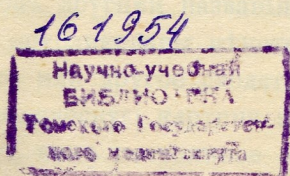 161954
Научно-учебная
БИБЛИОТЕКА
Томского Государствен-
ного мединститута